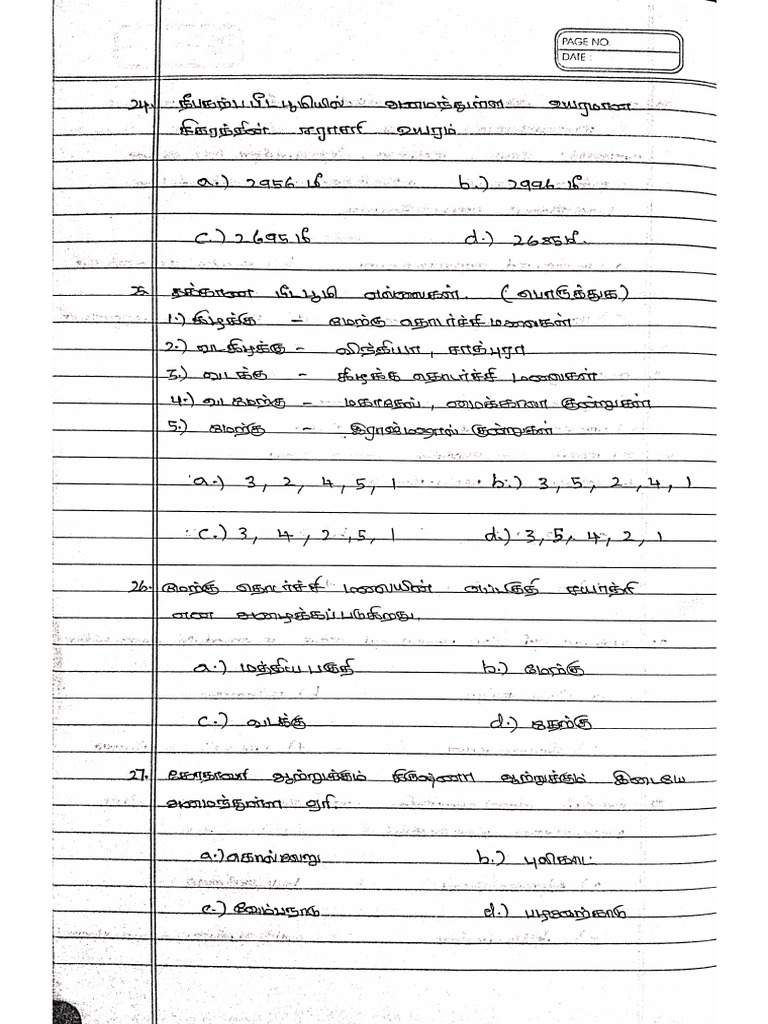 PAGE NO.
DATE :
24. தீபகற்ப பீடபூமியில் அமைந்துள்ள உயரமான
சிகரத்தின் சராசரி உயரம்
a.) 2956 மீ b.) 2996 மீ
c.) 2695 மீ d.) 2685 மீ.
25. தக்காண பீடபூமி எல்லைகள். (பொருத்துக)
1.) கிழக்கு – மேற்கு தொடர்ச்சி மலைகள்
2.) வடகிழக்கு – விந்தியா, சாத்பூரா
3.) வடக்கு – கிழக்கு தொடர்ச்சி மலைகள்
4.) வடமேற்கு – மகாதேவ், மைக்காலா குன்றுகள்
5.) மேற்கு – இராஜ்மஹால் குன்றுகள்
a.) 3, 2, 4, 5, 1 b.) 3, 5, 2, 4, 1
c.) 3, 4, 2, 5, 1 d.) 3, 5, 4, 2, 1
26. மேற்கு தொடர்ச்சி மலையின் எப்பகுதி சயாத்ரி
என அழைக்கப்படுகிறது.
a.) மத்திய பகுதி b.) மேற்கு
c.) வடக்கு d.) தெற்கு
27. கோதாவரி ஆற்றுக்கும் கிருஷ்ணா ஆற்றுக்கும் இடையே
அமைந்துள்ள ஏரி.
a.) கொல்லேறு b.) புலிகாட்
c.) வேம்பநாடு d.) பழவேற்காடு